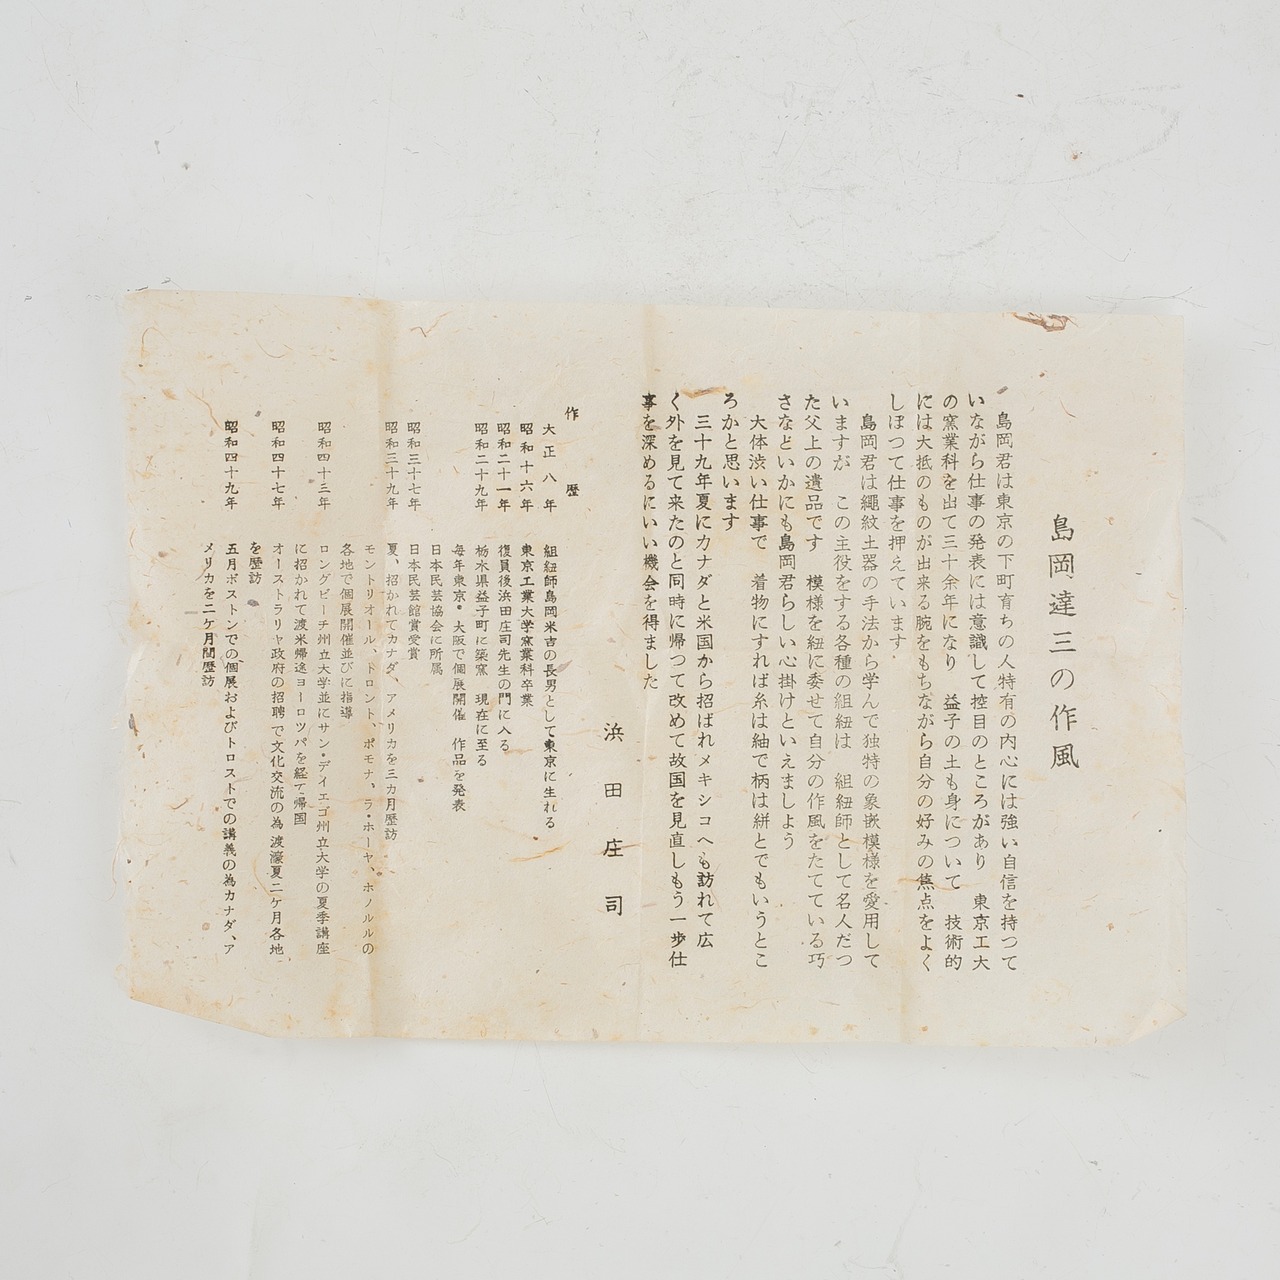 島岡達三の作風
島岡君は東京の下町育ちの人特有の内心には強い自信を持つて
いながら仕事の発表には意識して控目のところがあり　東京工大
の窯業科を出て三十余年になり　益子の土も身について　技術的
には大抵のものが出来る腕をもちながら自分の好みの焦点をよく
しぼつて仕事を押えています
島岡君は縄紋土器の手法から学んで独特の象嵌模様を愛用して
いますが　この主役をする各種の組紐は　組紐師として名人だつ
た父上の遺品です　模様を紐に委せて自分の作風をたてている巧
さなどいかにも島岡君らしい心掛けといえましよう
大体渋い仕事で　着物にすれば糸は紬で柄は絣とでもいうとこ
ろかと思います
三十九年夏にカナダと米国から招ばれメキシコへも訪れて広
く外を見て来たのと同時に帰つて改めて故国を見直しもう一歩仕
事を深めるにいい機会を得ました
浜田庄司
作歴
大正八年　組紐師島岡米吉の長男として東京に生れる
昭和十六年　東京工業大学窯業科卒業
昭和二十一年　復員後浜田庄司先生の門に入る
昭和二十九年　栃木県益子町に築窯　現在に至る
毎年東京・大阪で個展開催　作品を発表
日本民芸協会に所属
昭和三十七年　日本民芸館賞受賞
昭和三十九年　夏、招かれてカナダ、アメリカを三カ月歴訪
モントリオール、トロント、ポモナ、ラ・ホーヤ、ホノルルの
各地で個展開催並びに指導
昭和四十三年　ロングビーチ州立大学並にサン・デイエゴ州立大学の夏季講座
に招かれて渡米帰途ヨーロツパを経て帰国
昭和四十七年　オーストラリヤ政府の招聘で文化交流の為渡濠夏二ケ月各地
を歴訪
昭和四十九年　五月ボストンでの個展およびトロストでの講義の為カナダ、ア
メリカを二ケ月間歴訪